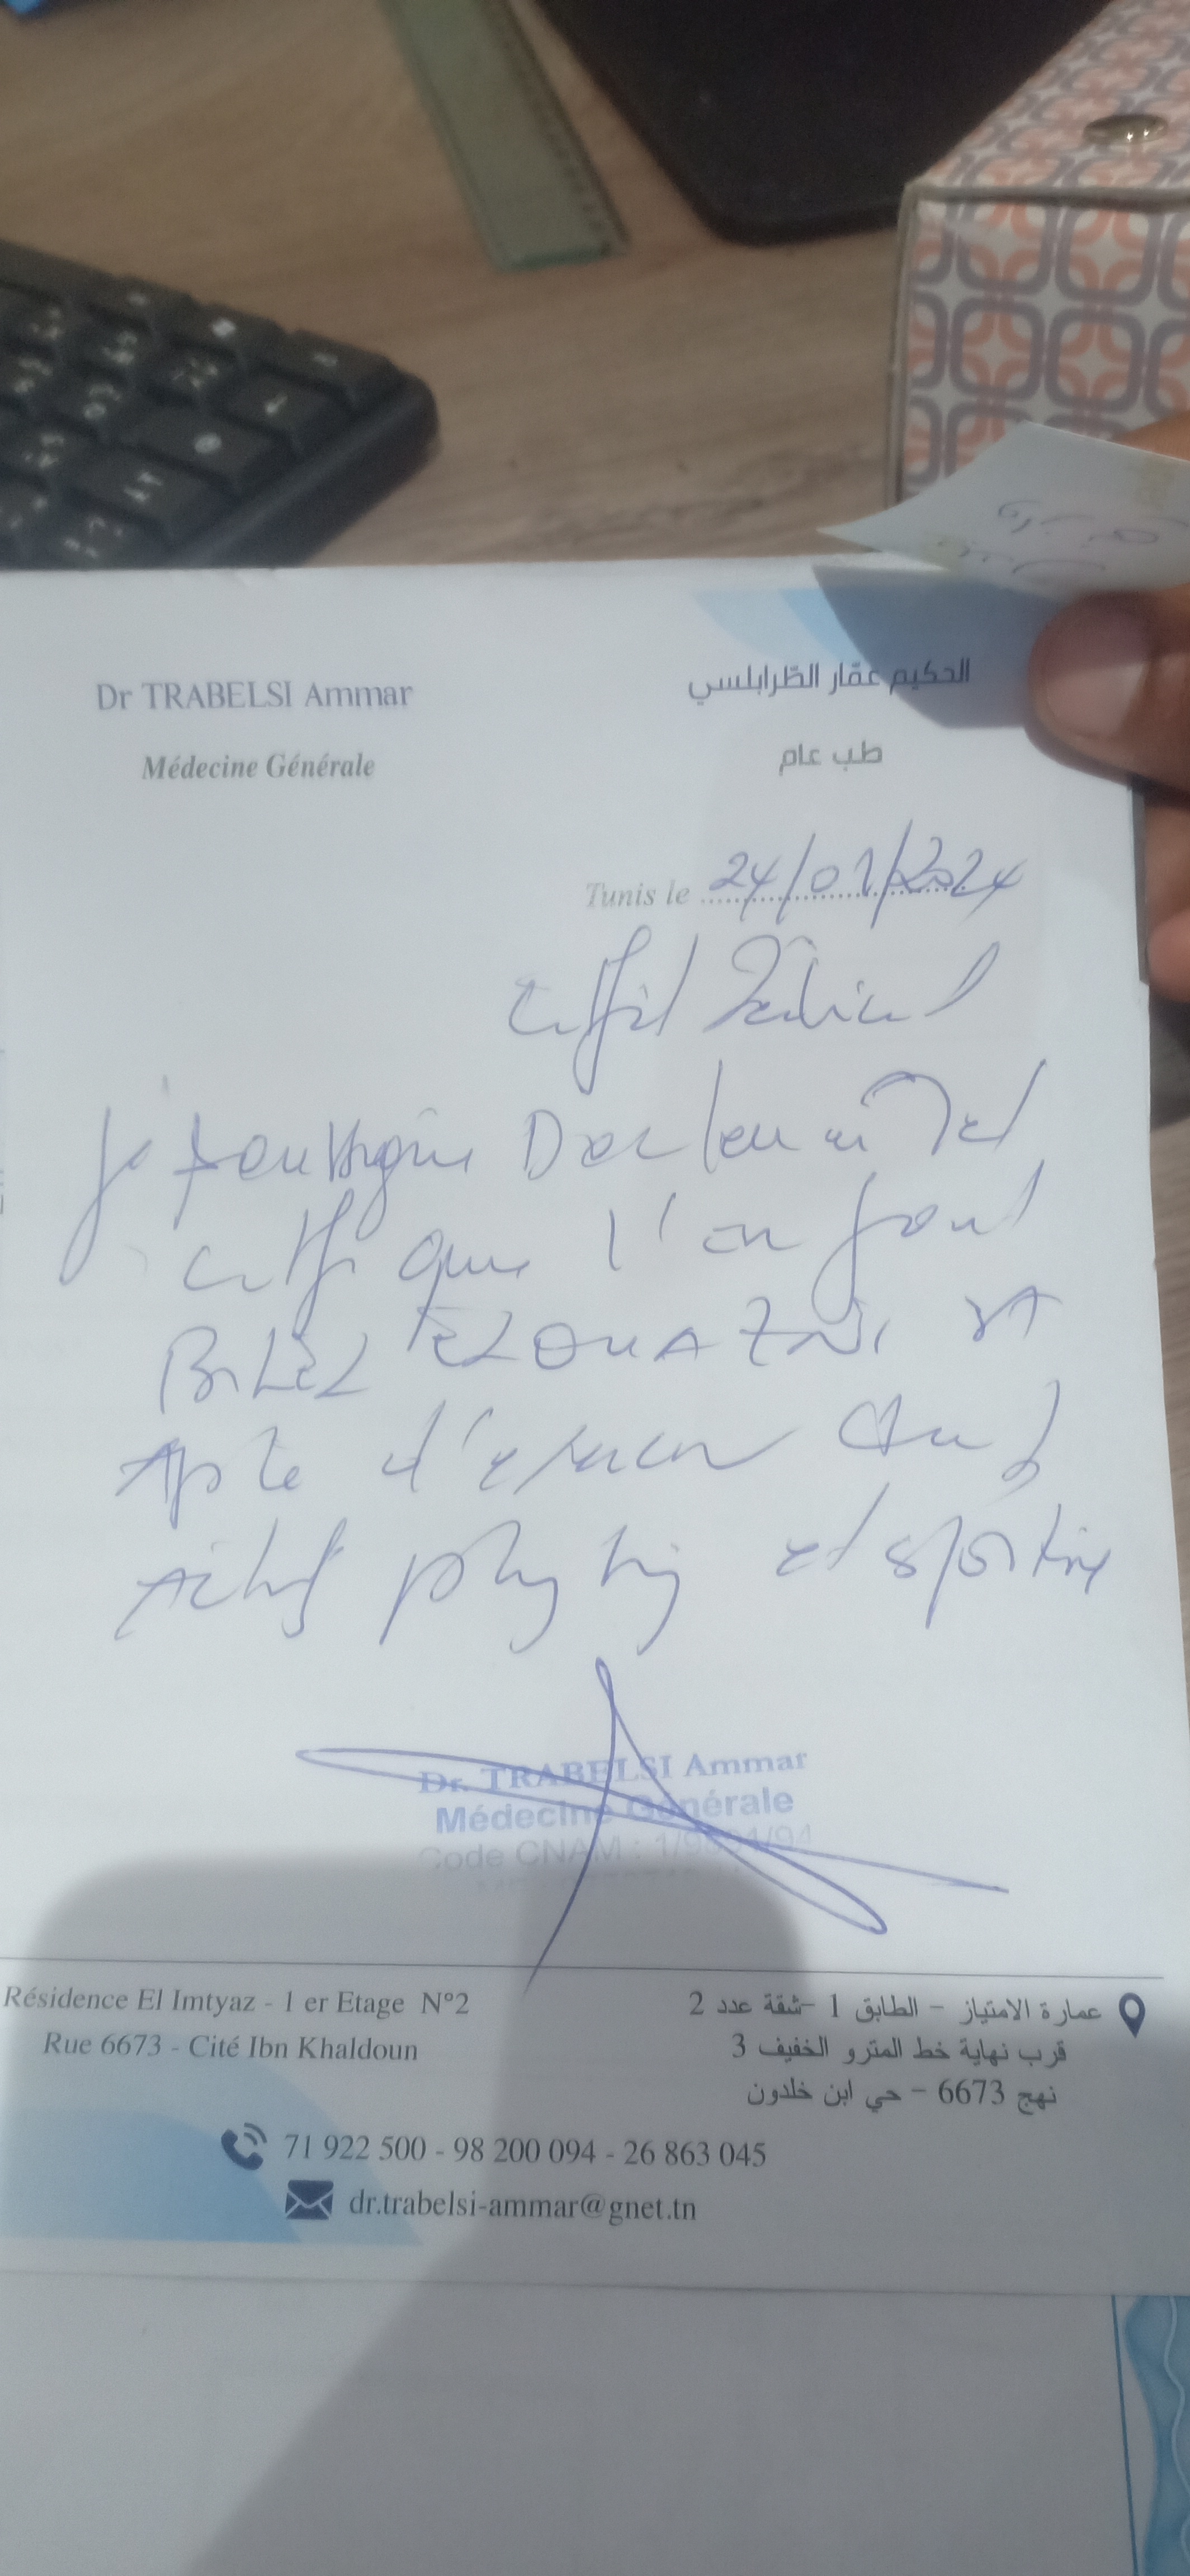 Dr TRABELSI Ammar
Médecine Générale
الحكيم عمّار الطّرابلسي
طب عام
Tunis le 24/01/2024
Certificat Médical
Je soussigné Docteur en Med
certifie que l'enfant
BILEL ELOUAZNI
Apte d'exercer
Activité physique et sportive
Dr. TRABELSI Ammar
Médecine Générale
Code CNAM :
Résidence El Imtyaz - 1 er Etage N°2
Rue 6673 - Cité Ibn Khaldoun
عمارة الامتياز - الطابق 1 -شقة عدد 2
قرب نهاية خط المترو الخفيف 3
نهج 6673 - حي ابن خلدون
71 922 500 - 98 200 094 - 26 863 045
dr.trabelsi-ammar@gnet.tn